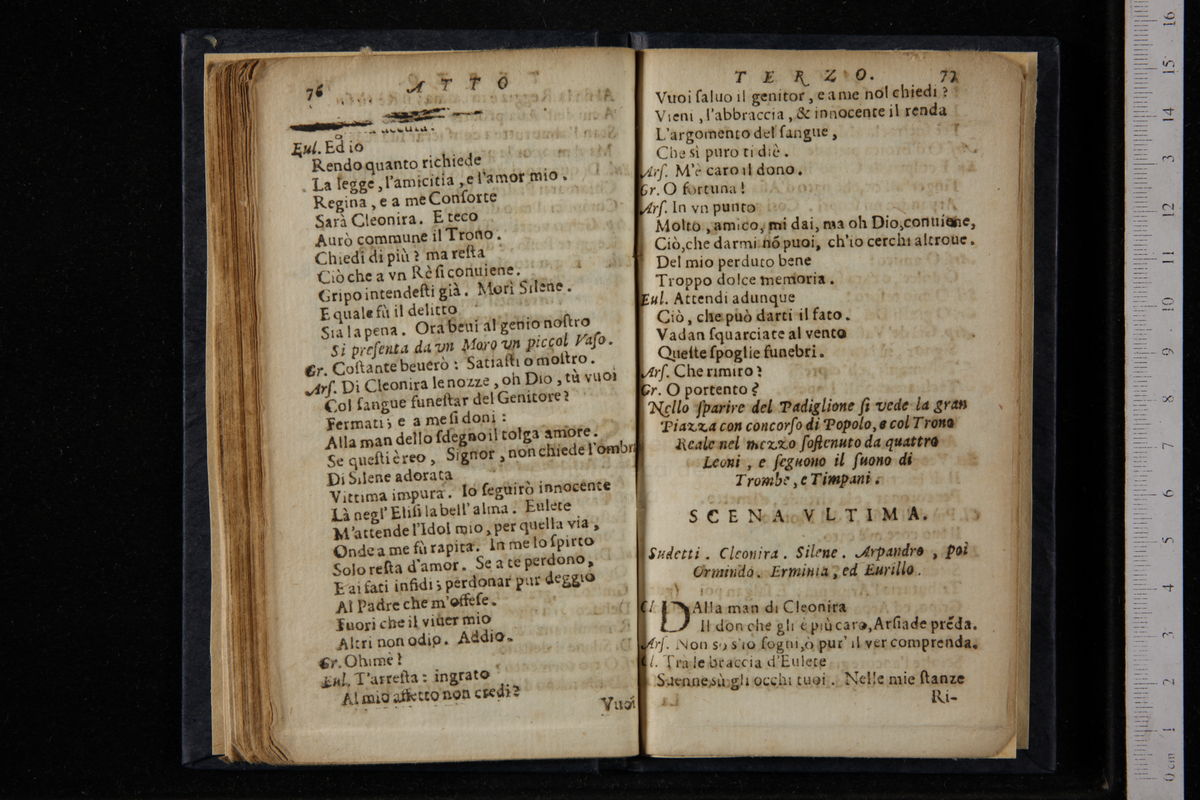 76 ATTO
Eul. Ed io
Rendo quanto richiede
La legge, l'amicitia, e l'amor mio.
Regina, e a me Conſorte
Sarà Cleonira. E teco
Aurò commune il Trono.
Chiedi di più? ma reſta
Ciò che a vn Rè ſi conuiene.
Gripo intendeſti già. Morì Silene.
E quale fù il delitto
Sia la pena. Ora beui al genio noſtro
Si preſenta da vn Moro vn piccol Vaſo.
Gr. Coſtante beuerò: Satiaſti o moſtro.
Arſ. Di Cleonira le nozze, oh Dio, tù vuoi
Col ſangue funeſtar del Genitore?
Fermati; e a me ſi doni:
Alla man dello ſdegno il tolga amore.
Se queſti è reo, Signor, non chiede l'ombr
Di Silene adorata
Vittima impura. Io ſeguirò innocente
Là negl'Eliſi la bell'alma. Eulete
M'attende l'Idol mio, per quella via,
Onde a me fù rapita. In me lo ſpirto
Solo reſta d'amor. Se a te perdono,
E ai fati infidi; perdonar pur deggio
Al Padre che m'offeſe.
Fuori che il viuer mio
Altri non odio. Addio.
Gr. Ohimè!
Eul. T'arreſta: ingrato
Al mio affetto non credi?
Vuoi
TERZO. 77
Vuoi ſaluo il genitor, e a me nol chiedi?
Vieni, l'abbraccia, & innocente il renda
L'argomento del ſangue,
Che sì puro ti diè.
Arſ. M'è caro il dono.
Gr. O fortuna!
Arſ. In vn punto
Molto, amico, mi dai, ma oh Dio, conuiene,
Ciò, che darmi nõ puoi, ch'io cerchi altroue.
Del mio perduto bene
Troppo dolce memoria.
Eul. Attendi adunque
Ciò, che può darti il fato.
Vadan ſquarciate al vento
Queſte ſpoglie funebri.
Arſ. Che rimiro?
Gr. O portento?
Nello ſparire del Padiglione ſi vede la gran
Piazza con concorſo di Popolo, e col Trono
Reale nel mezzo ſoſtenuto da quattro
Leoni, e ſeguono il ſuono di
Trombe, e Timpani.
SCENA VLTIMA.
Sudetti. Cleonira. Silene. Arpandro, poi
Ormindo. Erminia, ed Eurillo.
Cl. DAlla man di Cleonira
Il don che gli è più caro, Arſiade prẽda.
Arſ. Non so s'io ſogni, ò pur' il ver comprenda.
Cl. Trà le braccia d'Eulete
Suenne sù gli occhi tuoi. Nelle mie ſtanze
Ri-